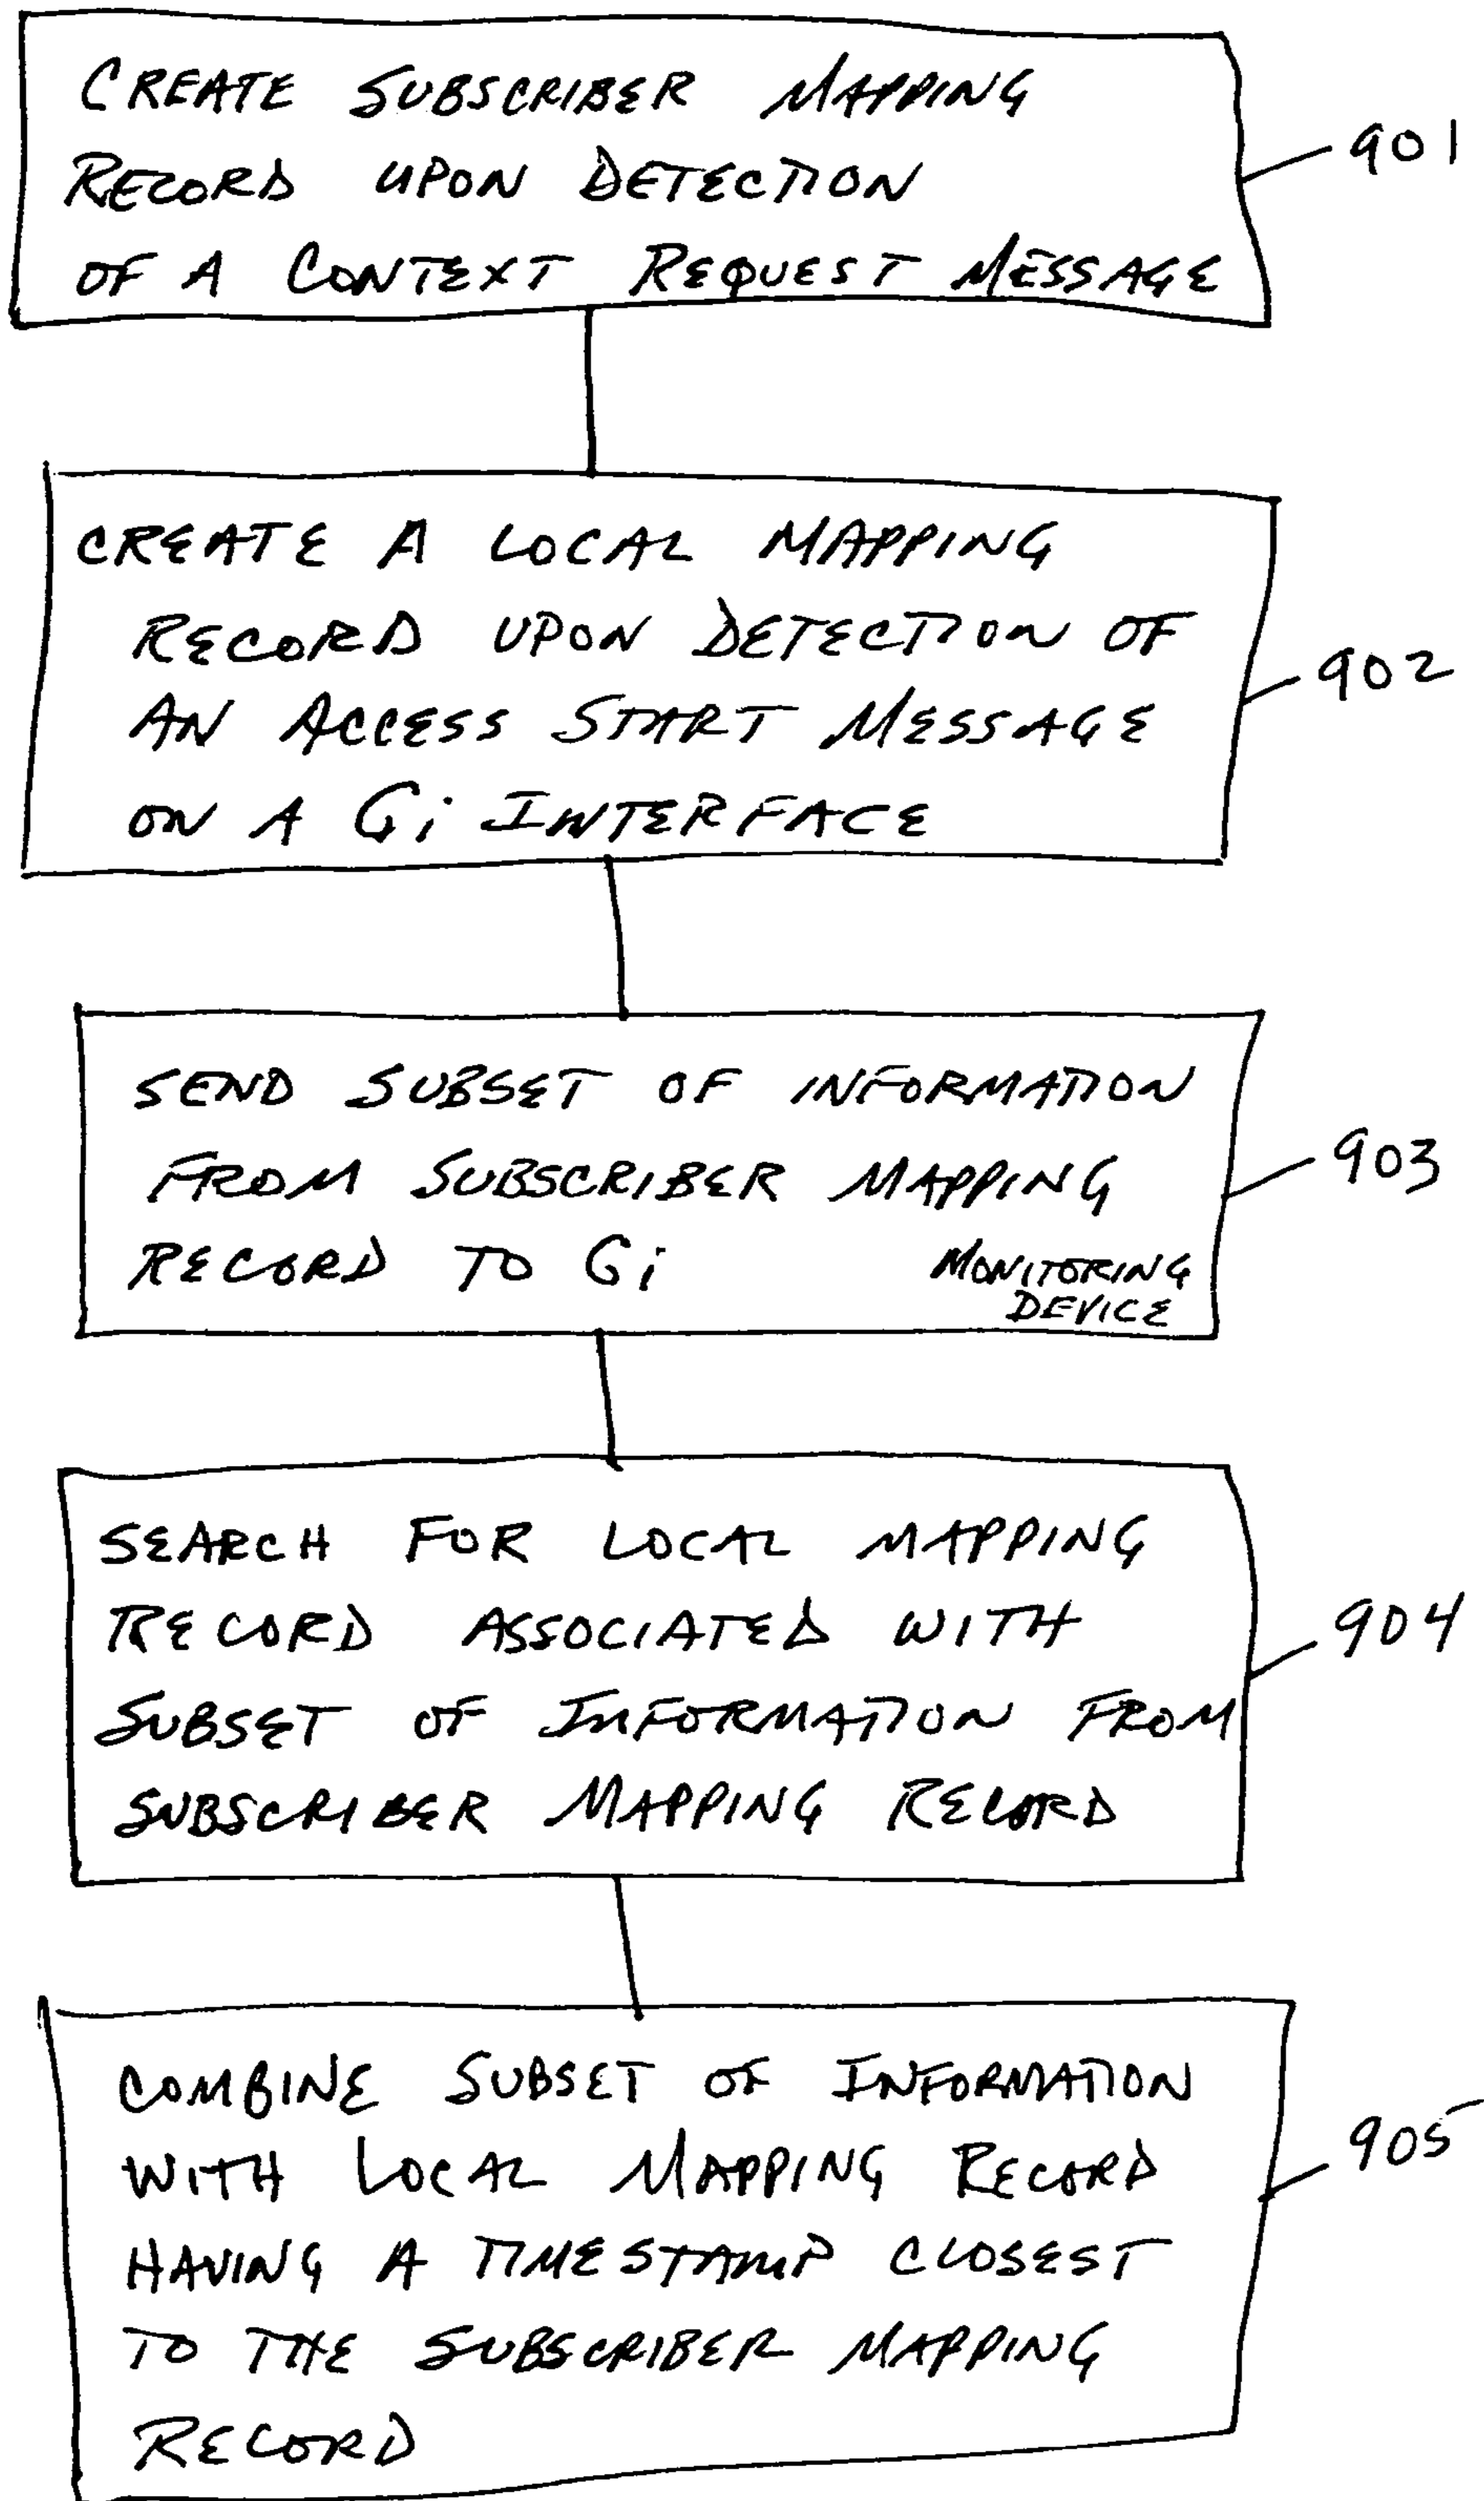 CREATE SUBSCRIBER MAPPING
RECORD UPON DETECTION
OF A CONTEXT REQUEST MESSAGE
901
CREATE A LOCAL MAPPING
RECORD UPON DETECTION OF
AN ACCESS START MESSAGE
ON A Gi INTERFACE
902
SEND SUBSET OF INFORMATION
FROM SUBSCRIBER MAPPING
RECORD TO Gi MONITORING
DEVICE
903
SEARCH FOR LOCAL MAPPING
RECORD ASSOCIATED WITH
SUBSET OF INFORMATION FROM
SUBSCRIBER MAPPING RECORD
904
COMBINE SUBSET OF INFORMATION
WITH LOCAL MAPPING RECORD
HAVING A TIMESTAMP CLOSEST
TO THE SUBSCRIBER MAPPING
RECORD
905